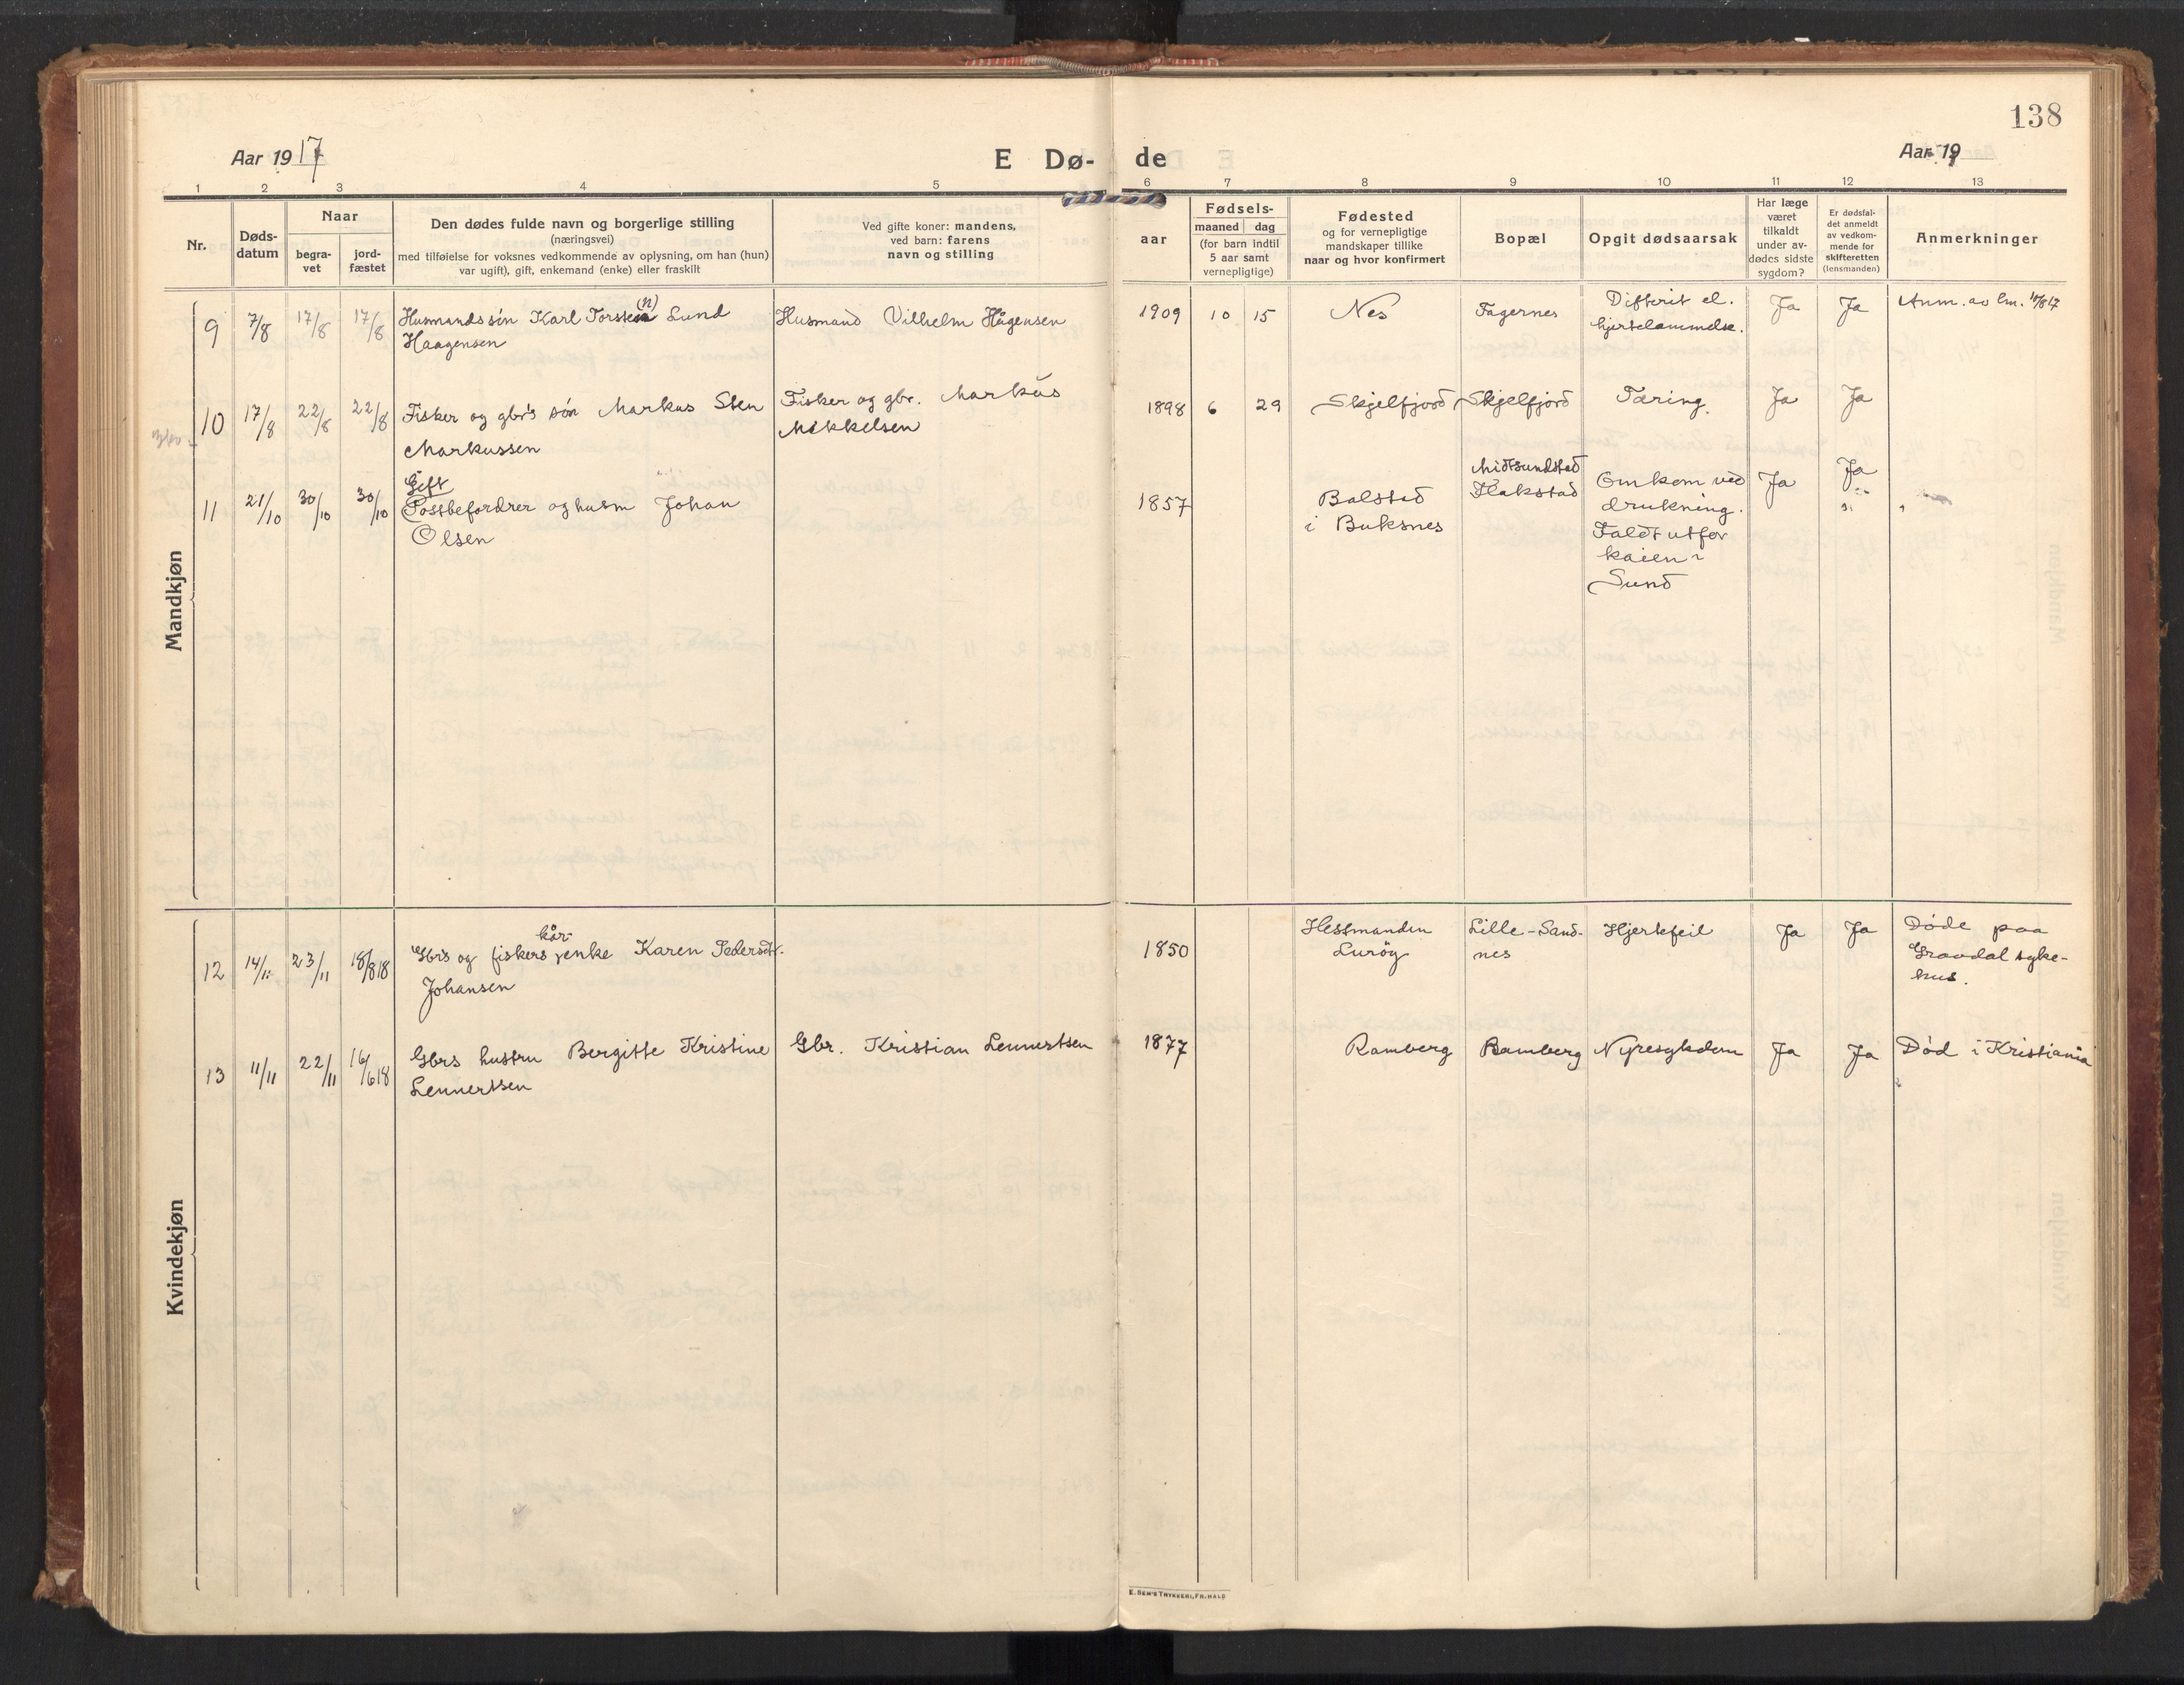 138
Aar 1917
E Dø-
de
Aar 19
1 2 3 4 5 6 7 8 9 10 11 12 13
Nr.
Døds-
datum
Naar
begra-
vet
jord-
fæstet
Den dødes fulde navn og borgerlige stilling
(næringsvei)
med tilføielse for voksnes vedkommende av oplysning, om han (hun)
var ugift), gift, enkemand (enke) eller fraskilt
Ved gifte koner: mandens,
ved barn: farens
navn og stilling
aar
Fødsels-
maaned dag
(for barn indtil
5 aar samt
vernepligtige)
Fødested
og for vernepligtige
mandskaper tillike
naar og hvor konfirmert
Bopæl
Opgit dødsaarsak
Har læge
været
tilkaldt
under av-
dødes sidste
sygdom?
Er dødsfal-
det anmeldt
av vedkom-
mende for
skifteretten
(lensmanden)
Anmerkninger
Mandkjøn
9 7/8 17/8 17/8
Husmandssøn Karl Torstein (n) Lund
Haagensen
Husmand Vilhelm Hågensen
1909 10 15
Nes
Fagernes
Difterit el.
hjertelammelse.
Ja
Ja
Anm. av lm. 10/8 17
10 17/8 22/8 22/8
Fisker og gbr's søn Markus Sten
Markussen
Fisker og gbr. Markus
Mikkelsen
1898 6 29
Skjelfjord
Skjelfjord
Tæring.
Ja
Ja
11 21/10 30/10 30/10
Gift
Postbefordrer og husm Johan
Olsen
1857
Balstad
i Buksnes
Midtsundstad
Flakstad
Omkom ved
drukning.
Faldt utfor
kaien i
Sund
Ja
Ja
Kvindekjøn
12 14/11 23/11 18/8 18
kår-
Gbrs og fiskers enke Karen Pedersdt.
Johansen
1850
Hestmanden
Lurøy
Lille-Sand-
nes
Hjertefeil
Ja
Ja
Døde paa
Gravdal syke-
hus.
13 11/11 22/11 16/6 18
Gbrs hustru Bergitte Kristine
Lennertsen
Gbr. Kristian Lennertsen
1877
Ramberg
Ramberg
Nyresykdom
Ja
Ja
Død i Kristiania
E. SEM'S TRYKKERI, FR. HALD